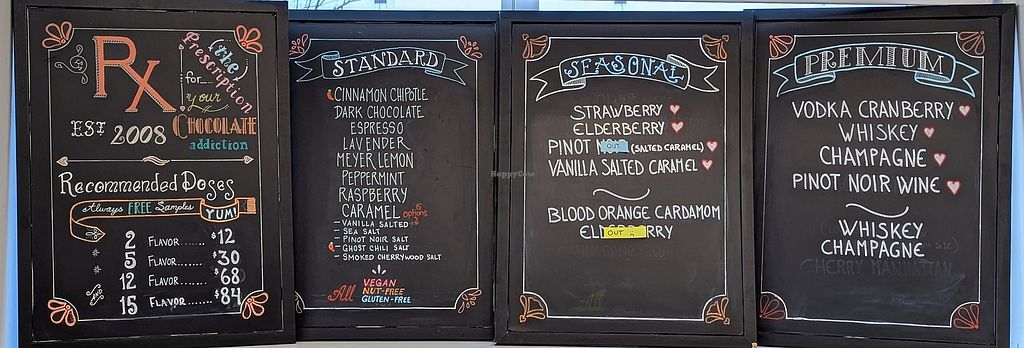 Rx
(the)
Prescription
for...
your
CHOCOLATE
addiction
EST 2008
Recommended Doses
Always FREE Samples YUM!
2 FLAVOR....... $12
5 FLAVOR....... $30
12 FLAVOR....... $68
15 FLAVOR....... $84
STANDARD
CINNAMON CHIPOTLE
DARK CHOCOLATE
ESPRESSO
LAVENDER
MEYER LEMON
PEPPERMINT
RASPBERRY
CARAMEL 5 options
- VANILLA SALTED
- SEA SALT
- PINOT NOIR SALT
- GHOST CHILI SALT
- SMOKED CHERRYWOOD SALT
All VEGAN
NUT-FREE
GLUTEN-FREE
SEASONAL
STRAWBERRY
ELDERBERRY
PINOT OUT (SALTED CARAMEL)
VANILLA SALTED CARAMEL
BLOOD ORANGE CARDAMOM
OUT
PREMIUM
VODKA CRANBERRY
WHISKEY
CHAMPAGNE
PINOT NOIR WINE
WHISKEY
CHAMPAGNE
CHERRY MANHATTAN
HappyCow